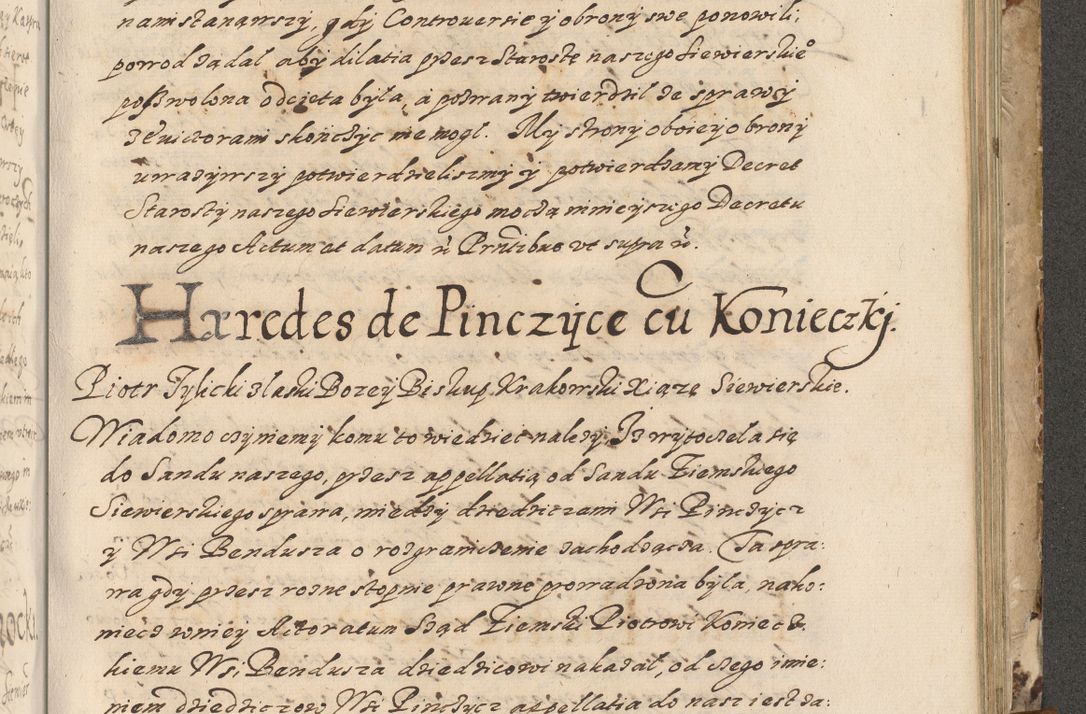 nami stanąwszy, gdy Controuersie y obrony swe ponowili:
powod żądał aby dilatia przesz Starostę naszego Siewierskie°
poswolona odcięta była, a pozwany twierdził że sprawy
z Ewictorami skończyc nie mogł. My strony oboiey obrony
uważywszy potwierdzieliszmy y potwierdzamy Decret
Starosty naszego Siewierskiego moczą ninieyszego Decretu
naszego Actum et datum ut supra
Hæredes de Pinczÿce cū Konieczkj.
Piotr Tylicki z laski Bozey Biskup Krakowski Xiążę Siewierskie.
Wiadomo czyniemy komu to wiedziec należy Iż wytoczela się
do Sandu naszego, przesz appellatią od Sandu Ziemskiego
Siewierskiego sprawa, miedzy dziedziczami Wsi Pinczycz
y Wsi Bendusza o rozgraniczenie zachodzącza. Ta spra:
wa gdy przesz rozne stopnie prawne prowadzona była, nako:
niecz w niey Actoratum Sżąd Ziemski Piotrowi Koniecz
kiemu Wsi Bendusza dziedzicowi nakazał, od czego imie:
niem dziedziczow Wsi Pinczycz appellatia do nasz iest za: